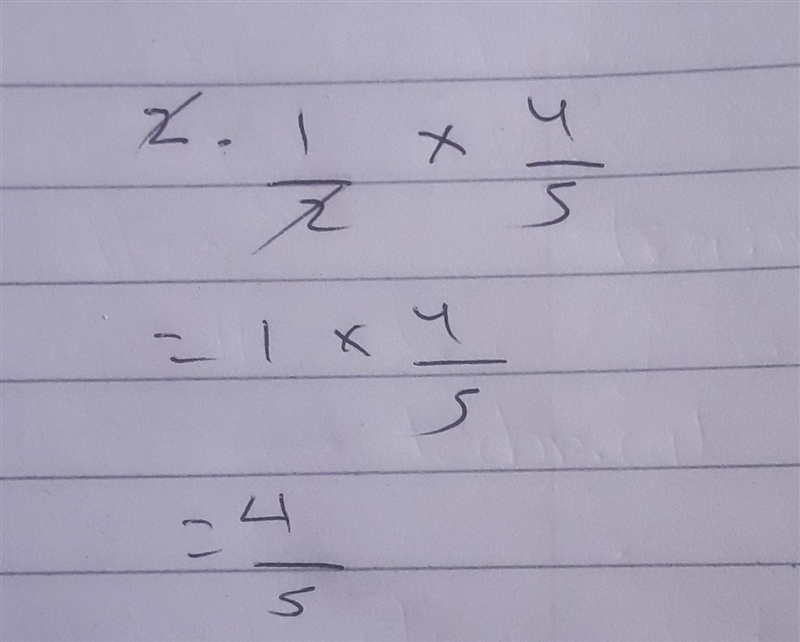 2 . 1/2 × 4/5
= 1 × 4/5
= 4/5